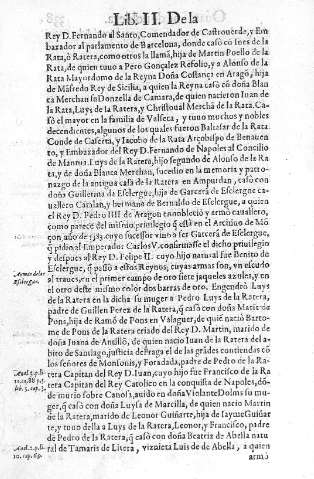 Lib. II. De la
Rey D. Fernando al Santo, Comendador de Castroverde, y Em
baxador al parlamento de Barcelona, donde casò cõ Ines de la
Rata, ò Ratera, como otros la llamã, hija de Martin Poello de la
Rata, de quien tuuo a Pero Gonçalez Refolio, y a Alonso de la
Rata Mayordomo de la Reyna Doña Costança en Aragõ, hija
de Mãfredo Rey de Sicilia, a quien la Reyna casò cõ doña Blan
ca Merchan su Donzella de Camara, de quien nacieron Iuan de
la Rata, Luys de la Ratera, y Christoual Merchã de la Rata. Ca-
sò el mayor en la familia de Valseca, y tuuo muchos y nobles
decendientes, algunos de los quales fueron Baltasar de la Rata
Conde de Caserta, y Iacobo de la Rata Arçobispo de Benauen
to, y Embaxador del Rey D. Fernando de Napoles al Concilio
de Mantua. Luys de la Ratera, hijo segundo de Alonso de la Ra
ta, y de doña Blanca Merchan, sucedio en la memoria y patro-
nazgo de la antigua casa de la Rata en Ampurdan, casò con
doña Guillelma de Esclergue, hija de Garcerã de Esclergue ca-
uallero Catalan, y hermano de Bernaldo de Esclergue, a quien
el Rey D. Pedro IIII de Aragon ennobleciò y armò cauallero,
como parece del mismo priuilegio q̃ està en el Archiuo de Mõ
çon año de 1383. cuyo sucessor vino a ser Garcerã de Esclergue,
q̃ pidio al Emperador Carlos V. confirmasse el dicho priuilegio
y despues al Rey D. Felipe II. cuyo hijo natural fue Benito de
Esclergue, q̃ passò a estos Reynos, cuyas armas son, vn escudo
al traues, en el primer campo de oro siete jaqueles azules, y en
el otro deste mismo color dos barras de oro. Engendrò Luys
de la Ratera en la dicha su muger a Pedro Luys de la Ratera,
padre de Guillen Perez de la Ratera, q̃ casò con doña Maris de
Pons, hija de Ramõ de Pons en Valaguer, de quiẽ naciò Barto-
me de Pons de la Ratera criado del Rey D. Martin, marido de
doña Iuana de Ansillò, de quien nacio Iuan de la Ratera del a-
bito de Santiago, justicia desraga el de las grãdes contiendas cõ
los señores de Monsonis, y Foradada, padre de Pedro de la Ra-
tera Capitan del Rey D. Iuan, cuyo hijo fue Francisco de la Ra
tera Capitan del Rey Catolico en la conquista de Napoles, dõ-
de murio sobre Canosa, auido en doña Violante Dolms su mu-
ger, q̃ casò con doña Luysa de Marcilla, de quien nacio Martin
de la Ratera, marido de Leonor Guiñarte, hija de Iayme Guiñar
te, y tuuo della a Luys de la Ratera, Leonor, y Francisco, padre
de Pedro de la Ratera, q̃ casò con doña Beatriz de Abella natu
ral de Tamaris de Litera, viznieta Luis de de Abella, a quien
armò
Armas de los
Esclergues.